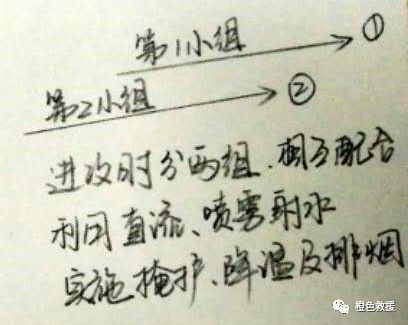 第1小组 ①
第2小组 ②
进攻时分两组、相互配合
利用直流、喷雾射水
实施掩护、降温及排烟
橙色救援